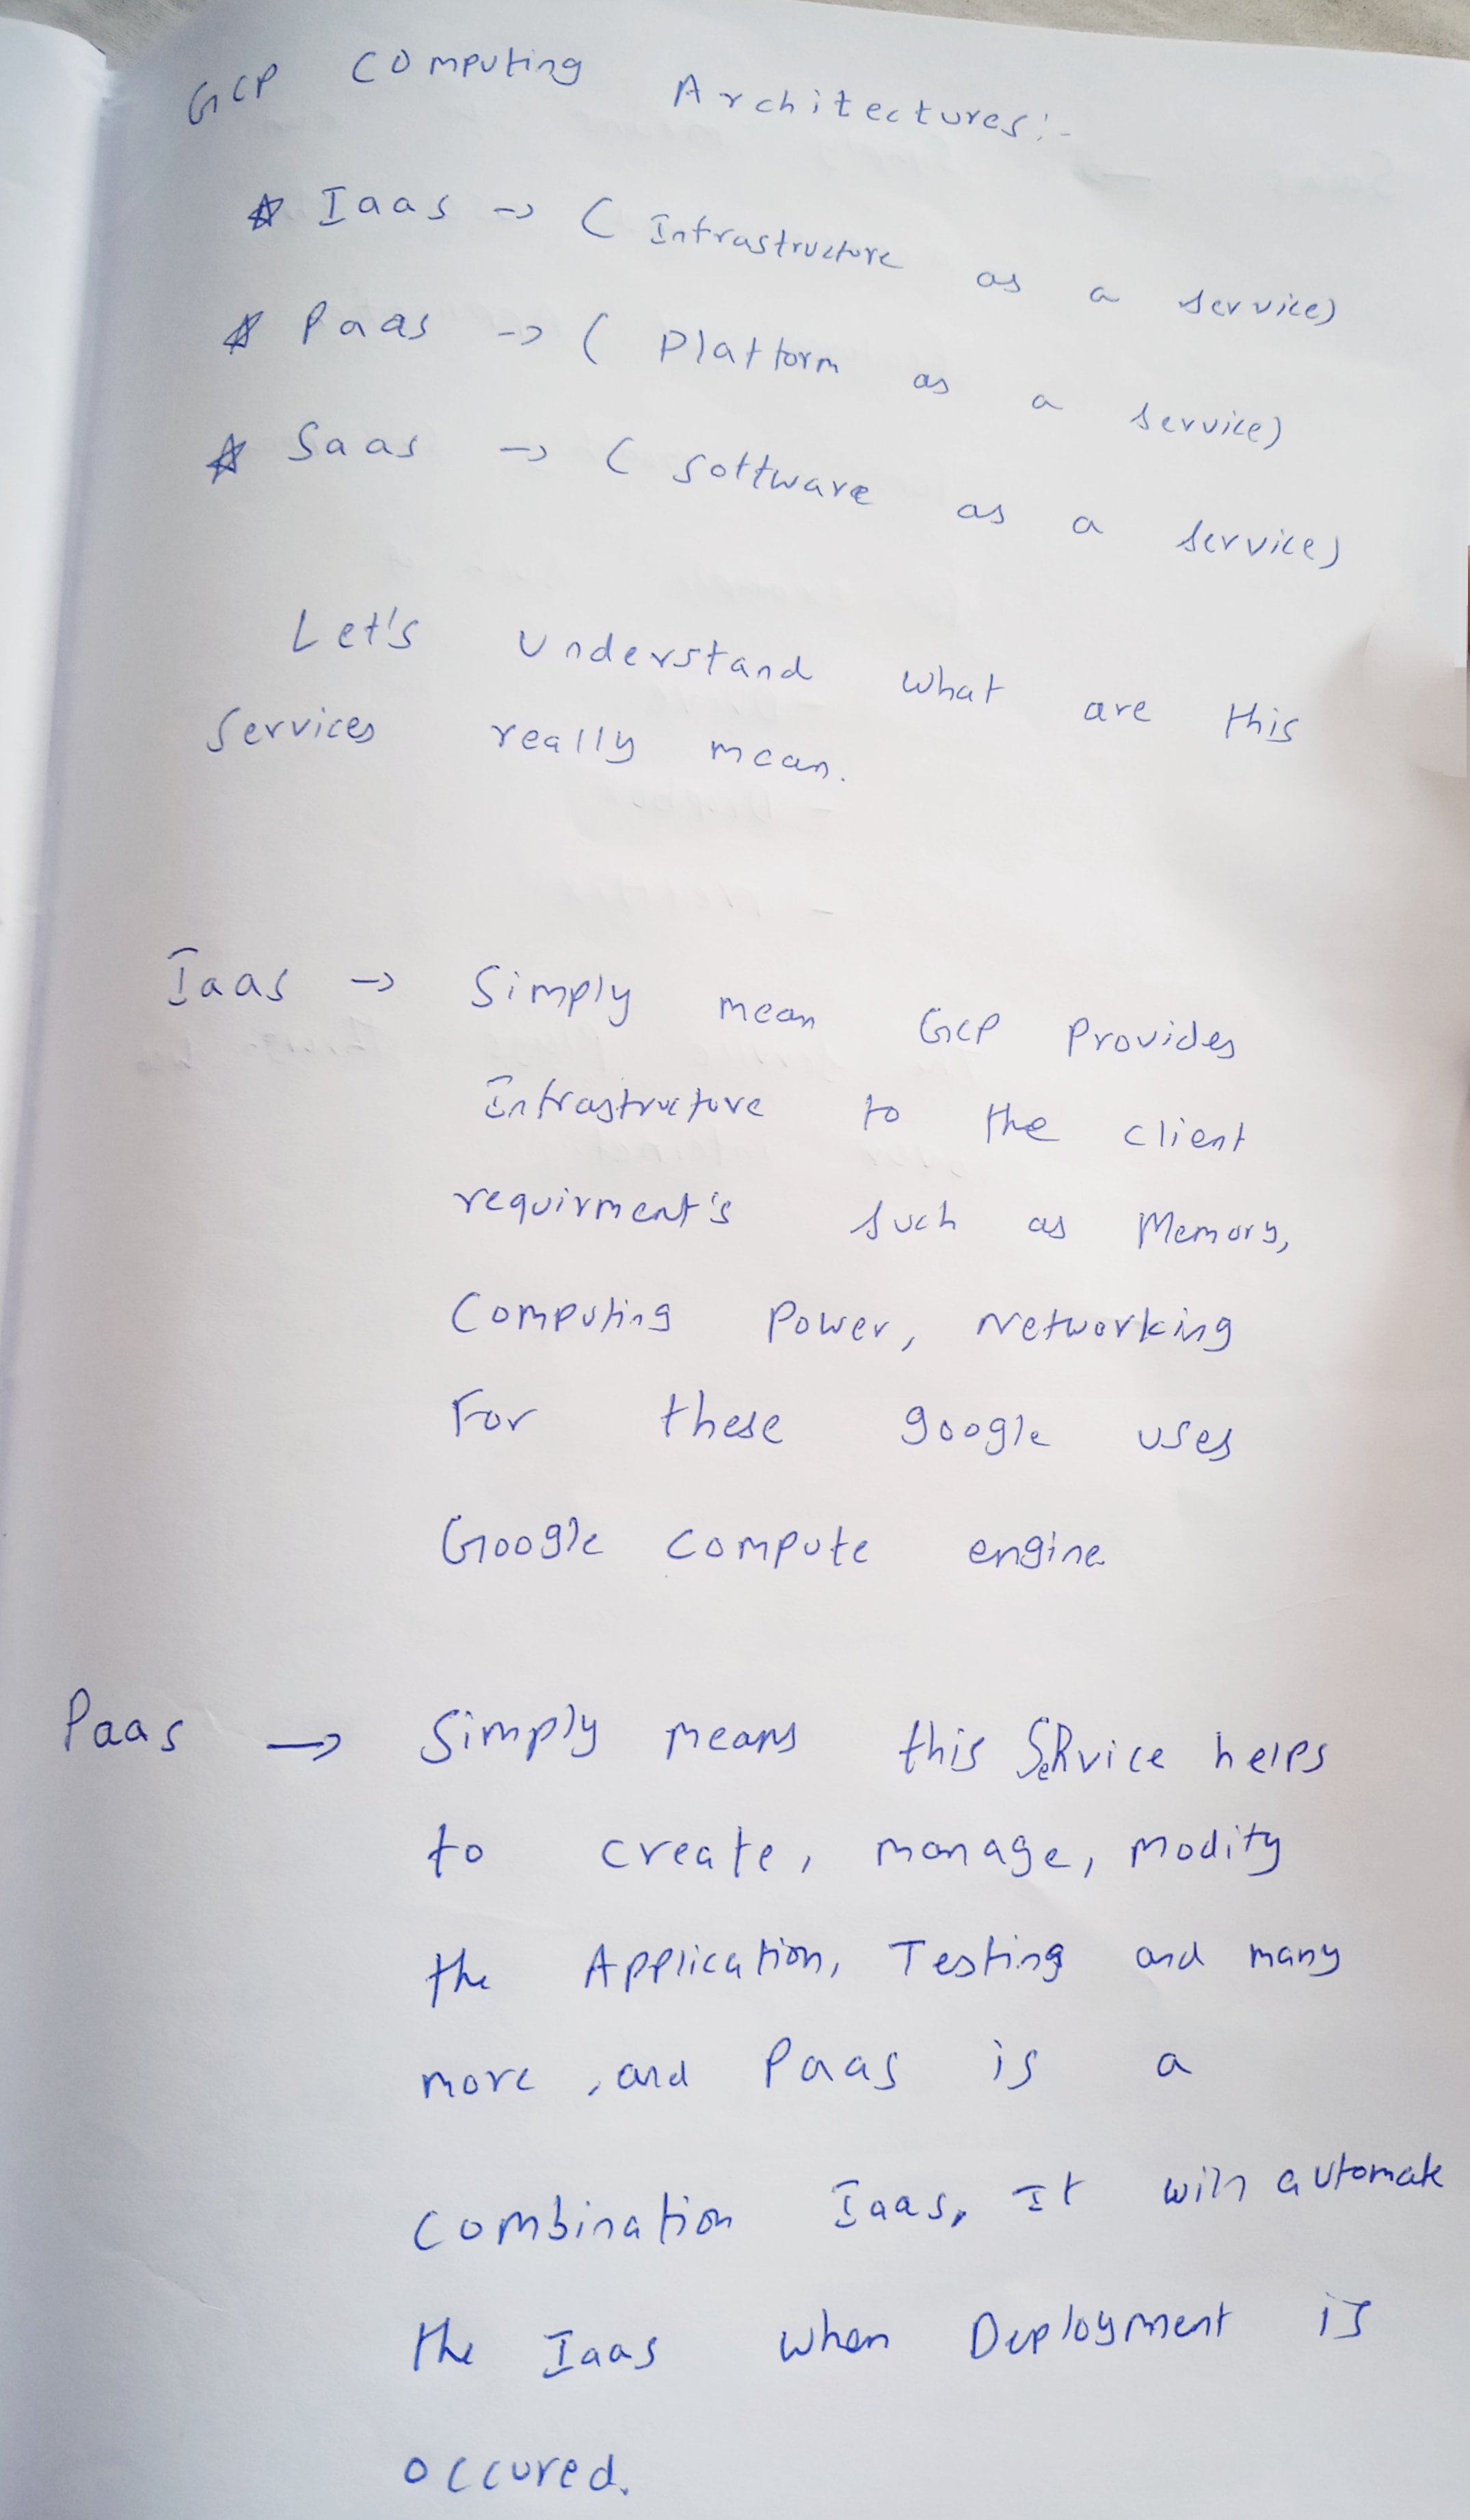 GCP Computing Architectures:-
☆ Iaas -> ( Infrastructure as a service)
☆ Paas -> ( Platform as a service)
☆ Saas -> ( Software as a service)
Let's understand what are this
services really mean.
Iaas -> Simply mean GCP Provides
Infrastructure to the client
requirment's such as Memory,
Computing Power, Networking
For these google uses
Google compute engine
Paas -> Simply means this SeRvice helps
to create, manage, Modify
the Application, Testing and many
more , and Paas is a
combination Iaas, It will automate
the Iaas when Deployment is
occured.